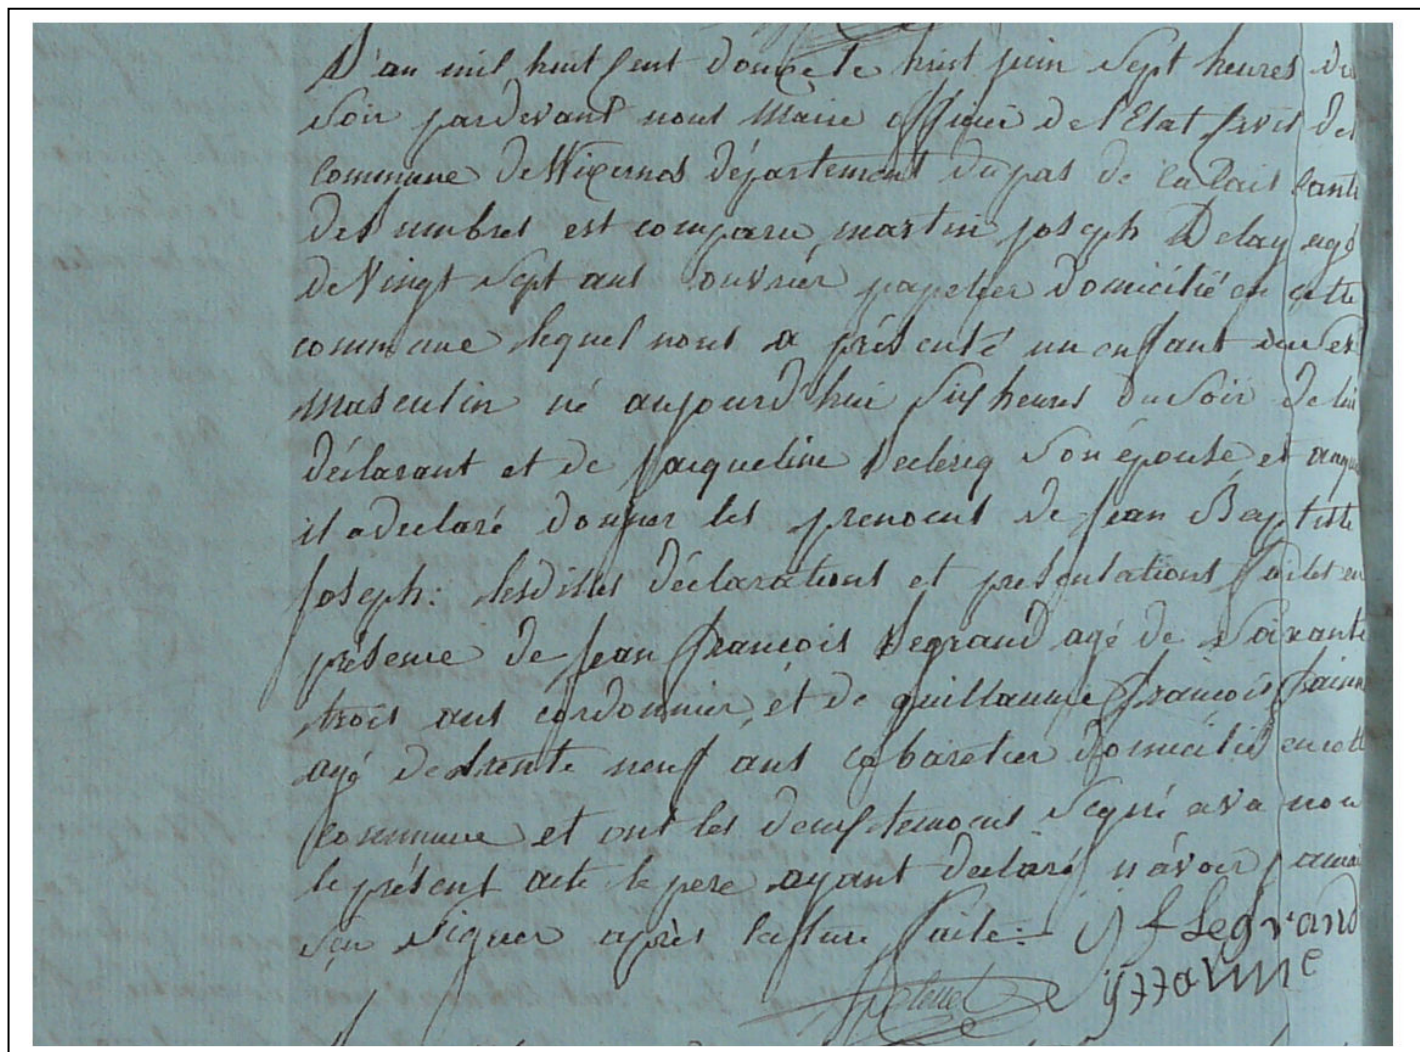 L'an mil huit cent douze le huit juin Sept heures du
Soir pardevant nous Maire officier de l'Etat civil de
commune de Wizernes département du pas de calais cant
des umbres est comparu martin joseph Delay agé
de Vingt Sept ans ouvrier papetier domicilié en cette
commune lequel nous a présenté un enfant du Sex
masculin né aujourd'hui Six heures du Soir de lui
déclarant et de jacqueline Declercq Son épouse et auqu
il a declaré donner les prenoms de jean Baptiste
joseph: lesdittes déclarations et présentations faites en
présence de jean françois Legrand agé de Soixante
trois ans cordonnier, et de guillaume françois
agé de trente neuf ans cabaretier domicilié en cette
commune et ont les deux temoins Signé ava nou
le présent acte le pere ayant déclaré n'avoir jamai
Sçu Signer après lecture faite. j f Legrand